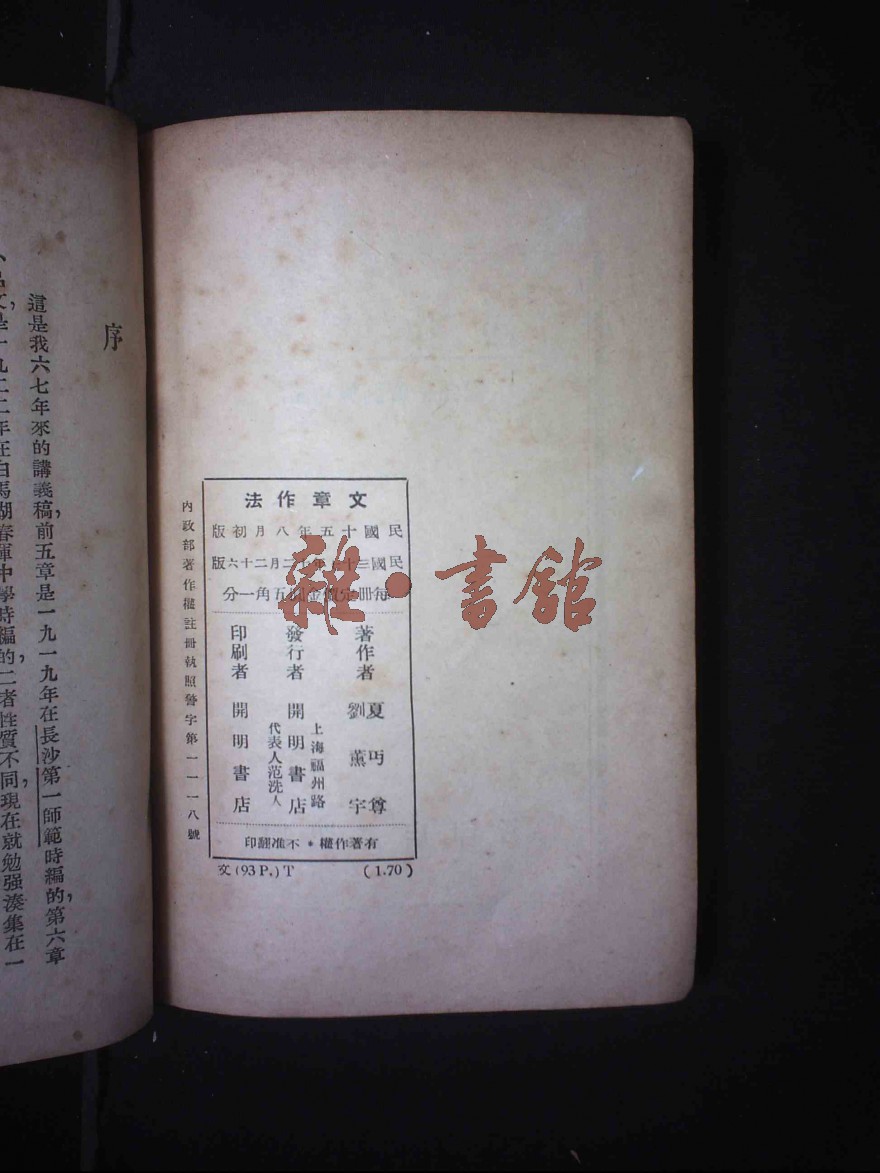 文章作法
民國十五年八月初版
民國三十 年 二月二十六版
每冊定價金圓五角一分
著作者 夏丏尊 劉薰宇
發行者 開明書店
上海福州路
代表人范洗人
印刷者 開明書店
有著作權＊不准翻印
文(93 P.) T (1.70)
內政部著作權註冊執照警字第一一一八號
雜·書館
序
這是我六七年來的講義稿，前五章是一九一九年在長沙第一師範時編的，第六章
小品文，是一九二二年在白馬湖春暉中學時編的。二者性質不同，現在就勉强湊集在一